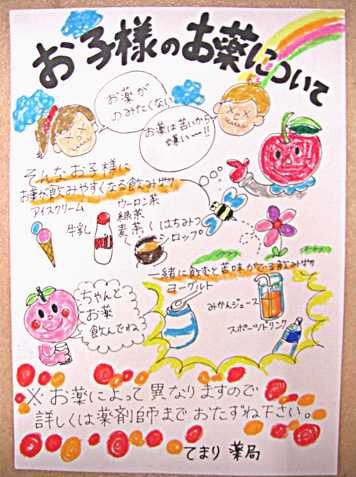 お子様のお薬について
お薬が
のみたくない
お薬は苦いから
嫌い〜!!
そんなお子様に
お薬が飲みやすくなる飲み物
アイスクリーム
牛乳
ウーロン茶
緑茶
麦茶
はちみつ
シロップ
一緒に飲むと苦味がでる飲み物
ヨーグルト
みかんジュース
スポーツドリンク
ちゃんと
お薬
飲んでね
※お薬によって異なりますので
詳しくは薬剤師までおたずね下さい。
てまり薬局